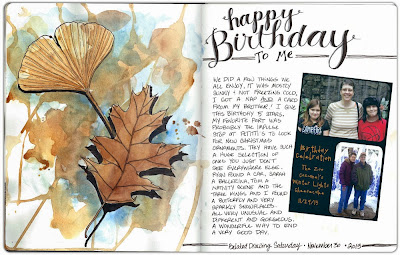 happy
Birthday
To Me
WE DID A FEW THINGS WE
ALL ENJOY, IT WAS MOSTLY
SUNNY & NOT FREEZING COLD,
I GOT A NAP AND A CARD
FROM MY BROTHER! I GIVE
THIS BIRTHDAY 5 STARS.
MY FAVORITE PART WAS
PROBABLY THE IMPULSE
STOP AT PETITTI'S TO LOOK
FOR NEW CHRISTMAS
ORNAMENTS. THEY HAVE SUCH
A HUGE SELECTION OF
ONES YOU JUST DON'T
SEE EVERYWHERE ELSE.
RYAN FOUND A CAR, SARAH
A BALLERINA, TOM A
NATIVITY SCENE AND THE
THREE KINGS AND I FOUND
A BUTTERFLY AND VERY
SPARKLY SNOWFLAKES.
ALL VERY UNUSUAL AND
DIFFERENT AND GORGEOUS.
A WONDERFUL WAY TO END
A VERY GOOD DAY.
Birthday
Celebration
The Zoo
Winter Lights
Saturday • November 30 • 2013